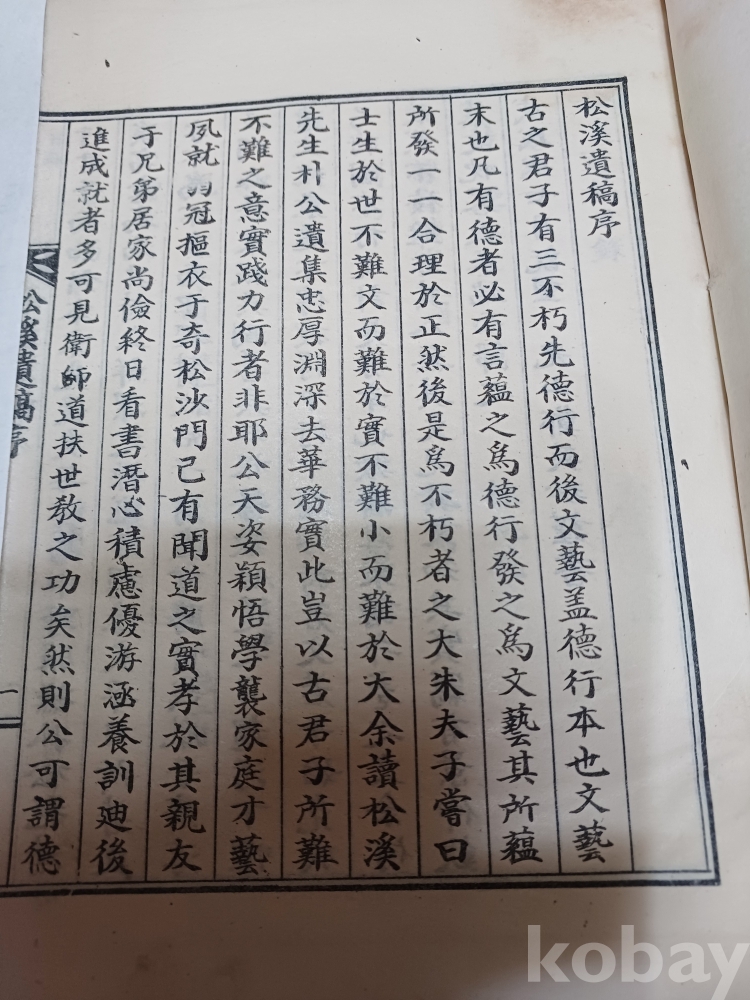 松溪遺稿序
古之君子有三不朽先德行而後文藝盖德行本也文藝
末也凡有德者必有言蘊之爲德行發之爲文藝其所蘊
所發一一合理於正然後是爲不朽者之大朱夫子嘗曰
士生於世不難文而難於實不難小而難於大余讀松溪
先生朴公遺集忠厚淵深去華務實此豈以古君子所難
不難之意實踐力行者非耶公天姿穎悟學襲家庭才藝
夙就 冠摳衣于奇松沙門已有聞道之實孝於其親友
于兄弟居家尚儉終日看書潛心積慮優游涵養訓迪後
進成就者多可見衛師道扶世教之功矣然則公可謂德
松溪遺稿序
一
kobay